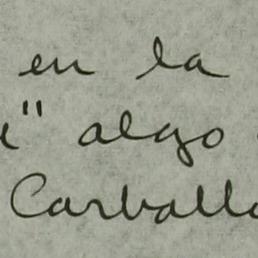 en la
" algo
Carvall